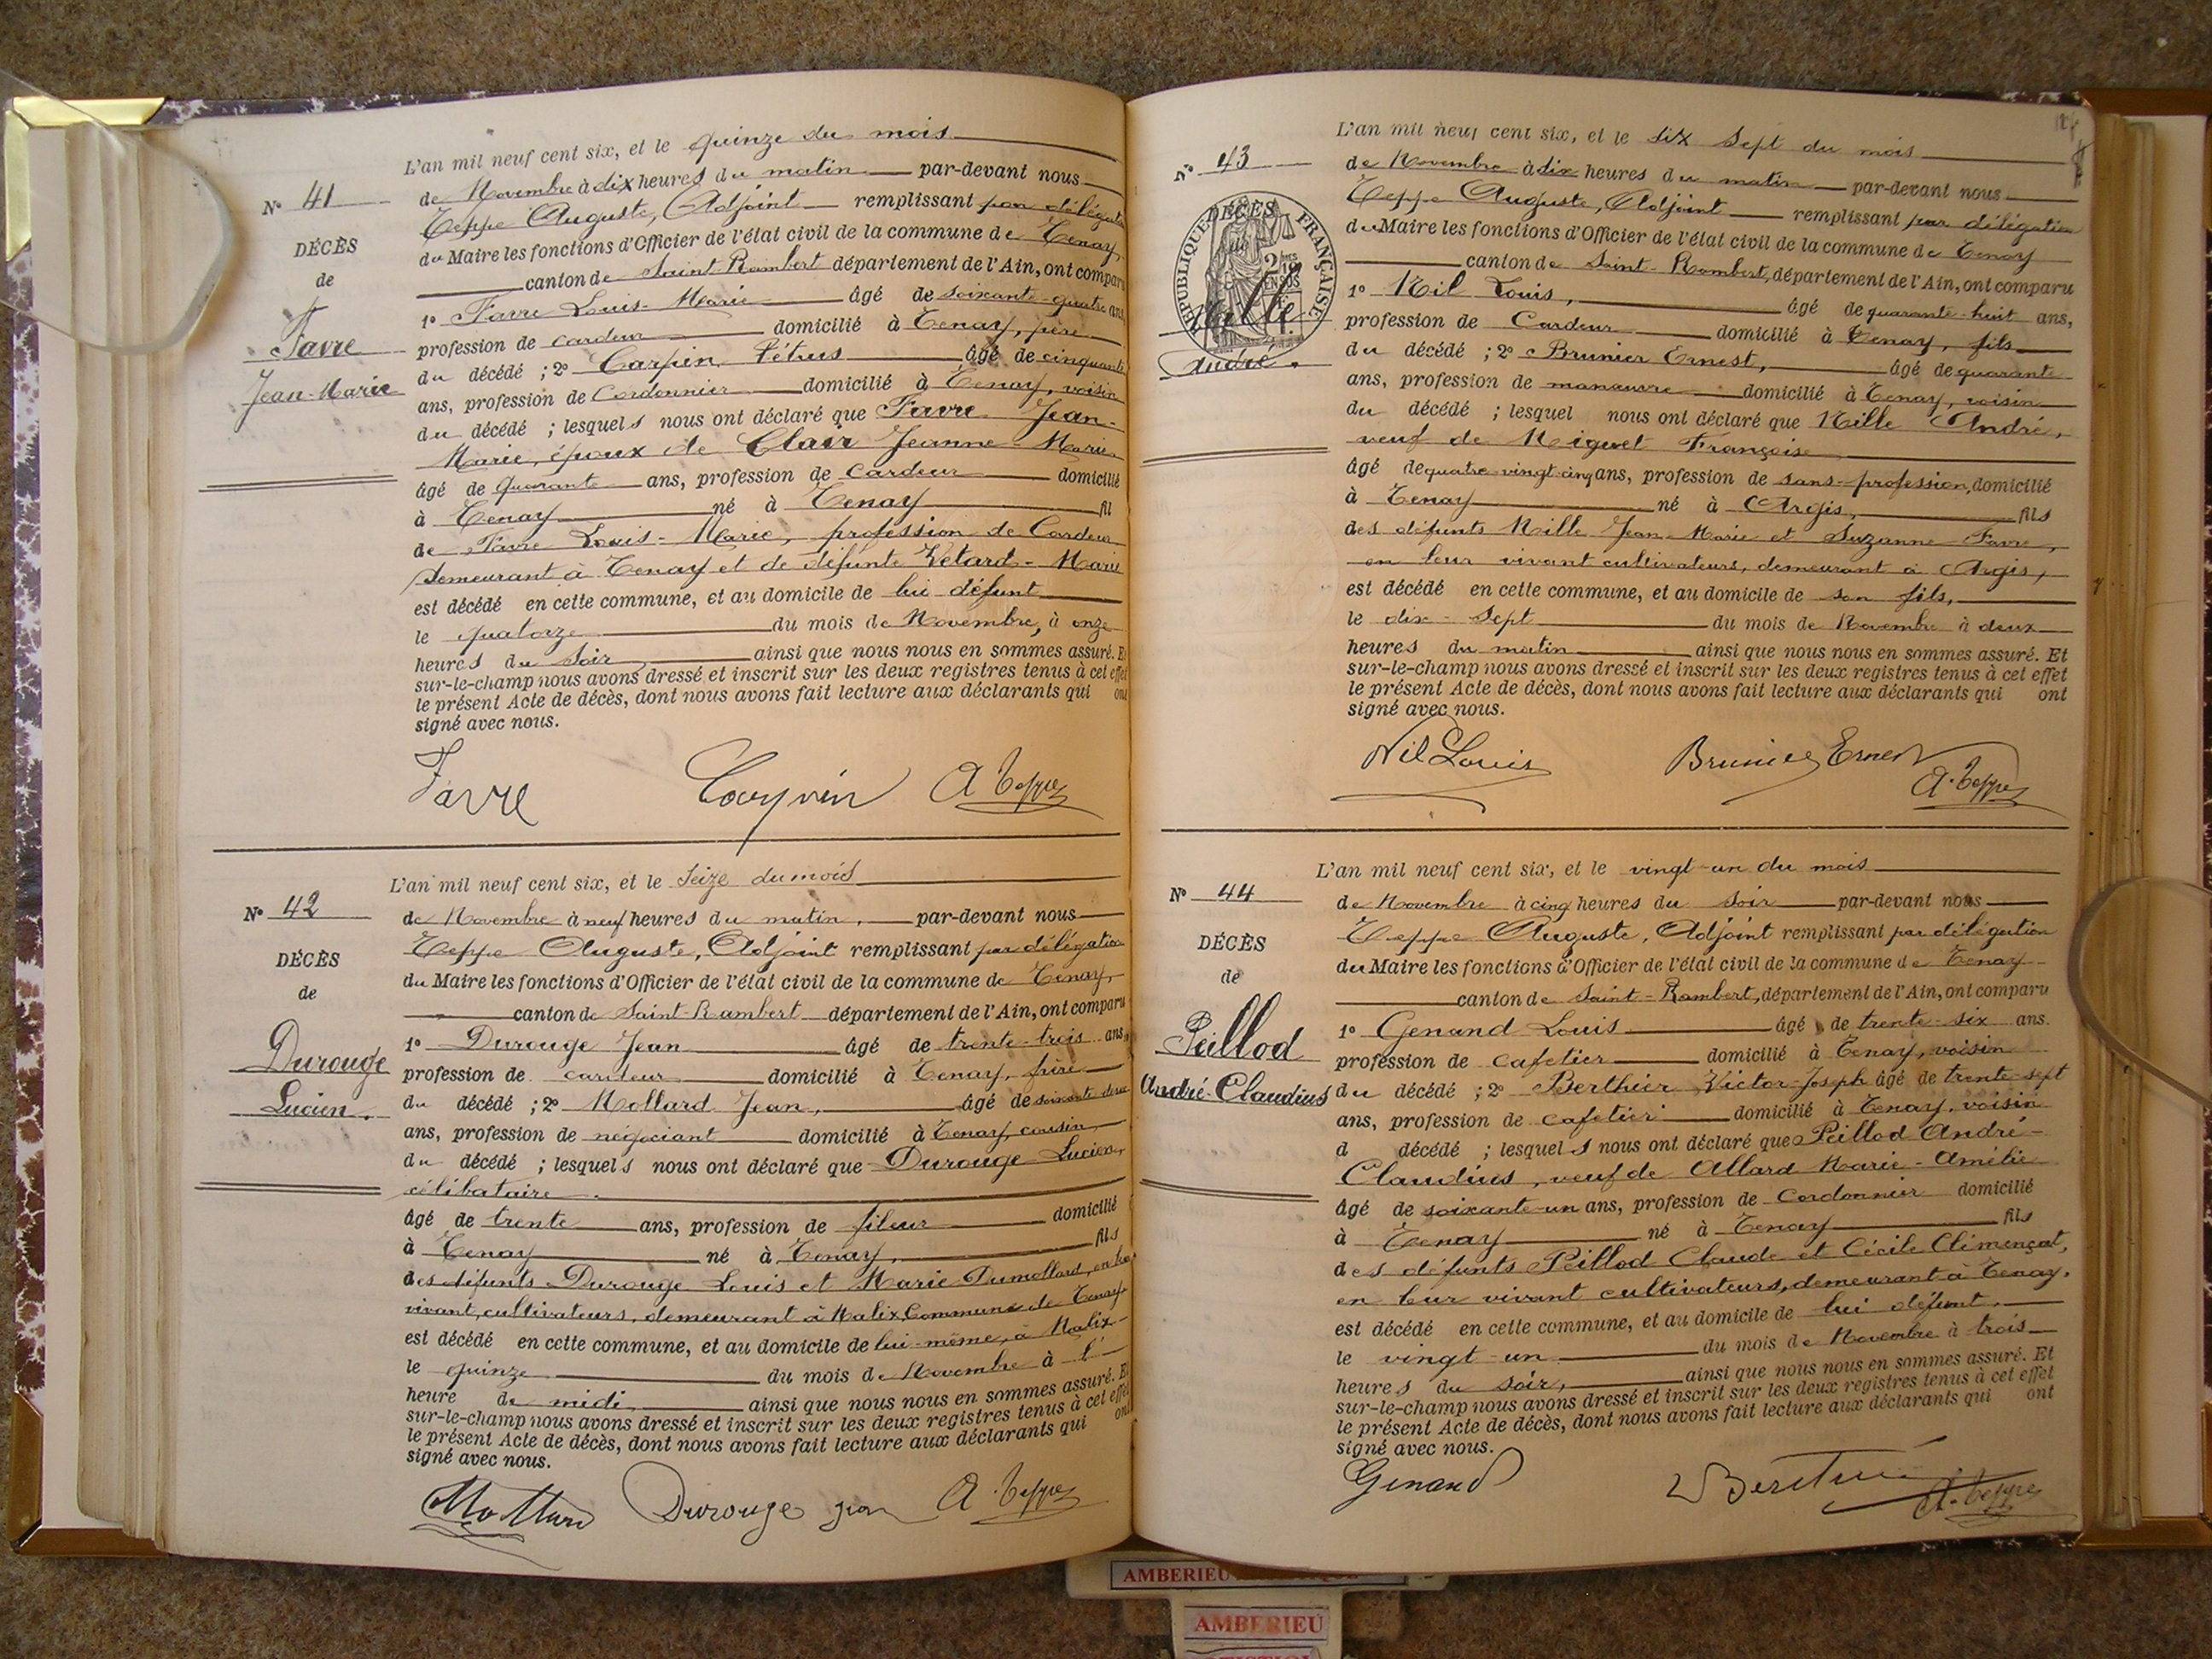 L'an mil neuf cent six, et le quinze du mois
N° 41
de Novembre à dix heures du matin par-devant nous
Teppe Auguste, Adjoint remplissant par délégation
DÉCÈS
du Maire les fonctions d'Officier de l'état civil de la commune de Tenay
de
canton de Saint-Rambert département de l'Ain, ont comparu
Favre
Jean-Marie
1° Favre Louis-Marie âgé de soixante-quatre ans
profession de cardeur domicilié à Tenay, père
du décédé ; 2° Carpin Pétrus âgé de cinquante
ans, profession de Cordonnier domicilié à Tenay, voisin
du décédé ; lesquels nous ont déclaré que Favre Jean-
Marie, époux de Clair Jeanne-Marie
âgé de quarante ans, profession de Cardeur domicilié
à Tenay né à Tenay fil
de Favre Louis-Marie, profession de Cardeur
demeurant à Tenay et de défunte Vetard-Marie
est décédé en cette commune, et au domicile de lui défunt
le quatorze du mois de Novembre, à onze
heures du soir ainsi que nous nous en sommes assuré. Et
sur-le-champ nous avons dressé et inscrit sur les deux registres tenus à cet effet
le présent Acte de décès, dont nous avons fait lecture aux déclarants qui ont
signé avec nous.
Favre Carpin A. Teppe
L'an mil neuf cent six, et le seize du mois
N° 42
de Novembre à neuf heures du matin, par-devant nous
Teppe Auguste, Adjoint remplissant par délégation
DÉCÈS
du Maire les fonctions d'Officier de l'état civil de la commune de Tenay
de
canton de Saint-Rambert département de l'Ain, ont comparu
Durouge
Lucien.
1° Durouge Jean âgé de trente-trois ans,
profession de cardeur domicilié à Tenay, frère
du décédé ; 2° Mollard Jean, âgé de soixante deux
ans, profession de négociant domicilié à Tenay, cousin
du décédé ; lesquels nous ont déclaré que Durouge Lucien,
célibataire
âgé de trente ans, profession de fileur domicilié
à Tenay né à Tenay, fils
des défunts Durouge Louis et Marie Dumollard, en leur
vivant, cultivateurs, demeurant à Malix, Commune de Tenay
est décédé en cette commune, et au domicile de lui-même, à Malix
le quinze du mois de Novembre à l'
heure de midi, ainsi que nous nous en sommes assuré. Et
sur-le-champ nous avons dressé et inscrit sur les deux registres tenus à cet effet
le présent Acte de décès, dont nous avons fait lecture aux déclarants qui ont
signé avec nous.
Mollard Durouge jean A. Teppe
L'an mil neuf cent six, et le dix sept du mois
N° 43
de Novembre à dix heures du matin par-devant nous
Teppe Auguste, Adjoint remplissant par délégation
RÉPUBLIQUE FRANÇAISE
DÉCÈS
du Maire les fonctions d'Officier de l'état civil de la commune de Tenay
canton de Saint-Rambert, département de l'Ain, ont comparu
Nille
André.
1° Nil Louis, âgé de quarante-huit ans,
profession de Cardeur domicilié à Tenay, fils
du décédé ; 2° Brunier Ernest, âgé de quarante
ans, profession de manœuvre domicilié à Tenay, voisin
du décédé ; lesquel nous ont déclaré que Nille André,
veuf de Niguet Françoise
âgé de quatre-vingt-cinq ans, profession de sans-profession, domicilié
à Tenay né à Argis, fils
des défunts Nille Jean-Marie et Suzanne Favre,
en leur vivant cultivateurs, demeurant à Argis,
est décédé en cette commune, et au domicile de son fils,
le dix-sept du mois de Novembre à deux
heures du matin ainsi que nous nous en sommes assuré. Et
sur-le-champ nous avons dressé et inscrit sur les deux registres tenus à cet effet
le présent Acte de décès, dont nous avons fait lecture aux déclarants qui ont
signé avec nous.
Nil Louis Brunier Ernest A. Teppe
L'an mil neuf cent six, et le vingt-un du mois
N° 44
de Novembre à cinq heures du soir par-devant nous
Teppe Auguste, Adjoint remplissant par délégation
DÉCÈS
du Maire les fonctions d'Officier de l'état civil de la commune de Tenay
de
canton de Saint-Rambert, département de l'Ain, ont comparu
Peillod
André-Claudius
1° Genand Louis âgé de trente-six ans.
profession de cafetier domicilié à Tenay, voisin
du décédé ; 2° Berthier Victor-Joseph âgé de trente-sept
ans, profession de cafetier domicilié à Tenay, voisin
d décédé ; lesquels nous ont déclaré que Peillod André-
Claudius, veuf de Allard Marie-Amélie
âgé de soixante-un ans, profession de Cordonnier domicilié
à Tenay né à Tenay fils
des défunts Peillod Claude et Cécile Clémençat,
en leur vivant cultivateurs, demeurant à Tenay,
est décédé en cette commune, et au domicile de lui défunt,
le vingt-un du mois de Novembre à trois
heures du soir, ainsi que nous nous en sommes assuré. Et
sur-le-champ nous avons dressé et inscrit sur les deux registres tenus à cet effet
le présent Acte de décès, dont nous avons fait lecture aux déclarants qui ont
signé avec nous.
Genand A. Teppe
AMBERIEU
AMBERIEU